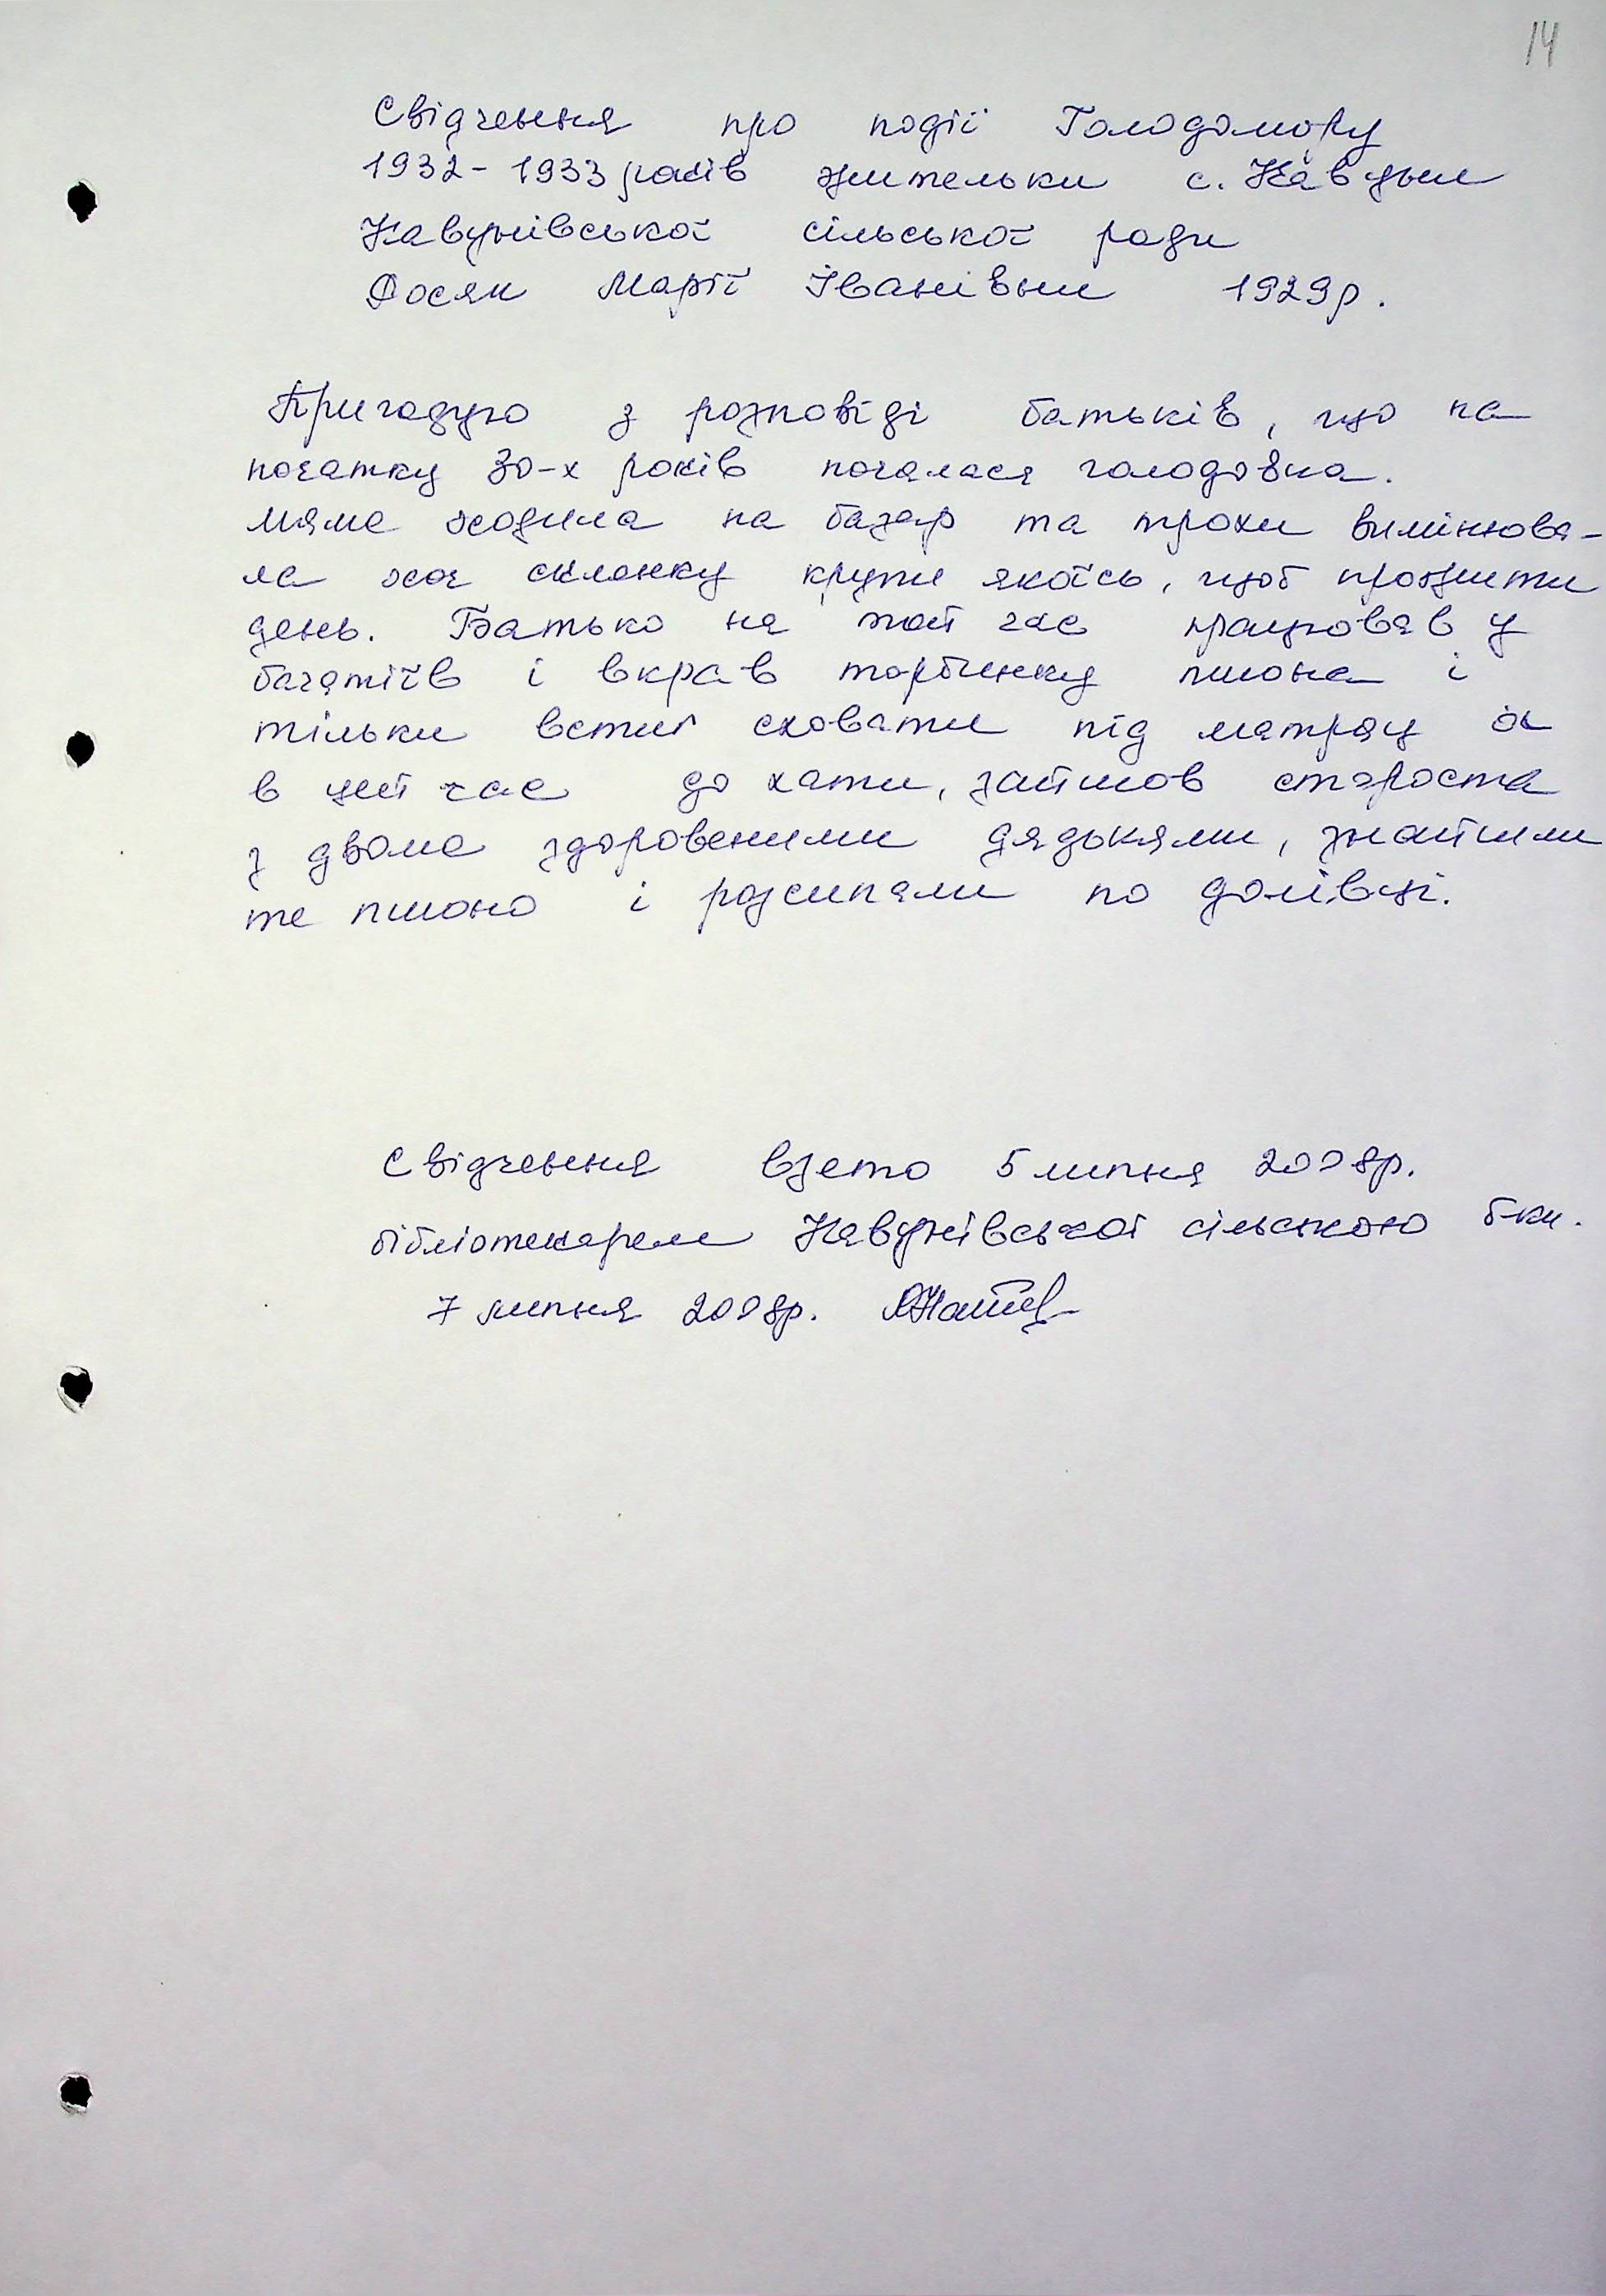 14
Свідчення про події Голодомору
1932-1933 років жительки с. Кавуни
Кавунівської сільської ради
Досяк Марії Іванівни 1929р.
Пригадую з розповіді батьків, що на
початку 30-х років почалася голодовка.
Мама ходила на базар та трохи вимінюва-
ла хоч склянку крупи якоїсь, щоб прожити
день. Батько на той час працював у
багатіїв і вкрав торбинку пшона і
тільки встиг сховати під матрац як
в цей час до хати, зайшов староста
з двома здоровеними дядьками, знайшли
те пшоно і розсипали по долівці.
Свідчення взято 5 липня 2008р.
бібліотекарем Кавунівської сільською б-ки.
7 липня 2008р.